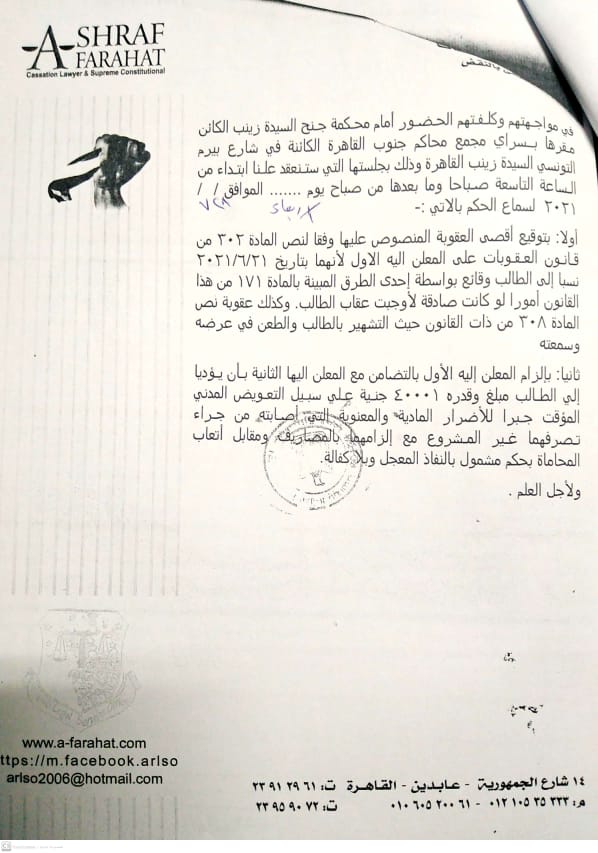 ASHRAF
FARAHAT
Cassation Lawyer & Supreme Constitutional
بالنقض
في مواجهتهم وكلفتهم الحضور أمام محكمة جنح السيدة زينب الكائن
مقرها بسراي مجمع محاكم جنوب القاهرة الكائنة في شارع بيرم
التونسي السيدة زينب القاهرة وذلك بجلستها التي ستنعقد علنا ابتداء من
الساعة التاسعة صباحا وما بعدها من صباح يوم ....... الموافق / /
٢٠٢١ لسماع الحكم بالاتي :-
أولا: بتوقيع أقصى العقوبة المنصوص عليها وفقا لنص المادة ٣٠٢ من
قانون العقوبات على المعلن اليه الاول لأنهما بتاريخ ٢٠٢١/٦/٢١
نسبا إلى الطالب وقائع بواسطة إحدى الطرق المبينة بالمادة ١٧١ من هذا
القانون أمورا لو كانت صادقة لأوجبت عقاب الطالب. وكذلك عقوبة نص
المادة ٣٠٨ من ذات القانون حيث التشهير بالطالب والطعن في عرضه
وسمعته
ثانيا: بإلزام المعلن إليه الأول بالتضامن مع المعلن اليها الثانية بأن يؤديا
إلي الطالب مبلغ وقدره ٤٠٠٠١ جنية علي سبيل التعويض المدني
المؤقت جبرا للأضرار المادية والمعنوية التي أصابته من جراء
تصرفهما غير المشروع مع إلزامهما بالمصاريف ومقابل أتعاب
المحاماة بحكم مشمول بالنفاذ المعجل وبلا كفالة.
ولأجل العلم .
www.a-farahat.com
ttps://m.facebook.arlso
arlso2006@hotmail.com
١٤ شارع الجمهورية - عابدين - القاهرة ت: ٢٣٩١٢٩٦١
م: ٠١٢١٠٥٣٥٣٣٣ - ٠١٠٦٠٥٢٠٠٦١ ت: ٢٣٩٥٩٠٧٢